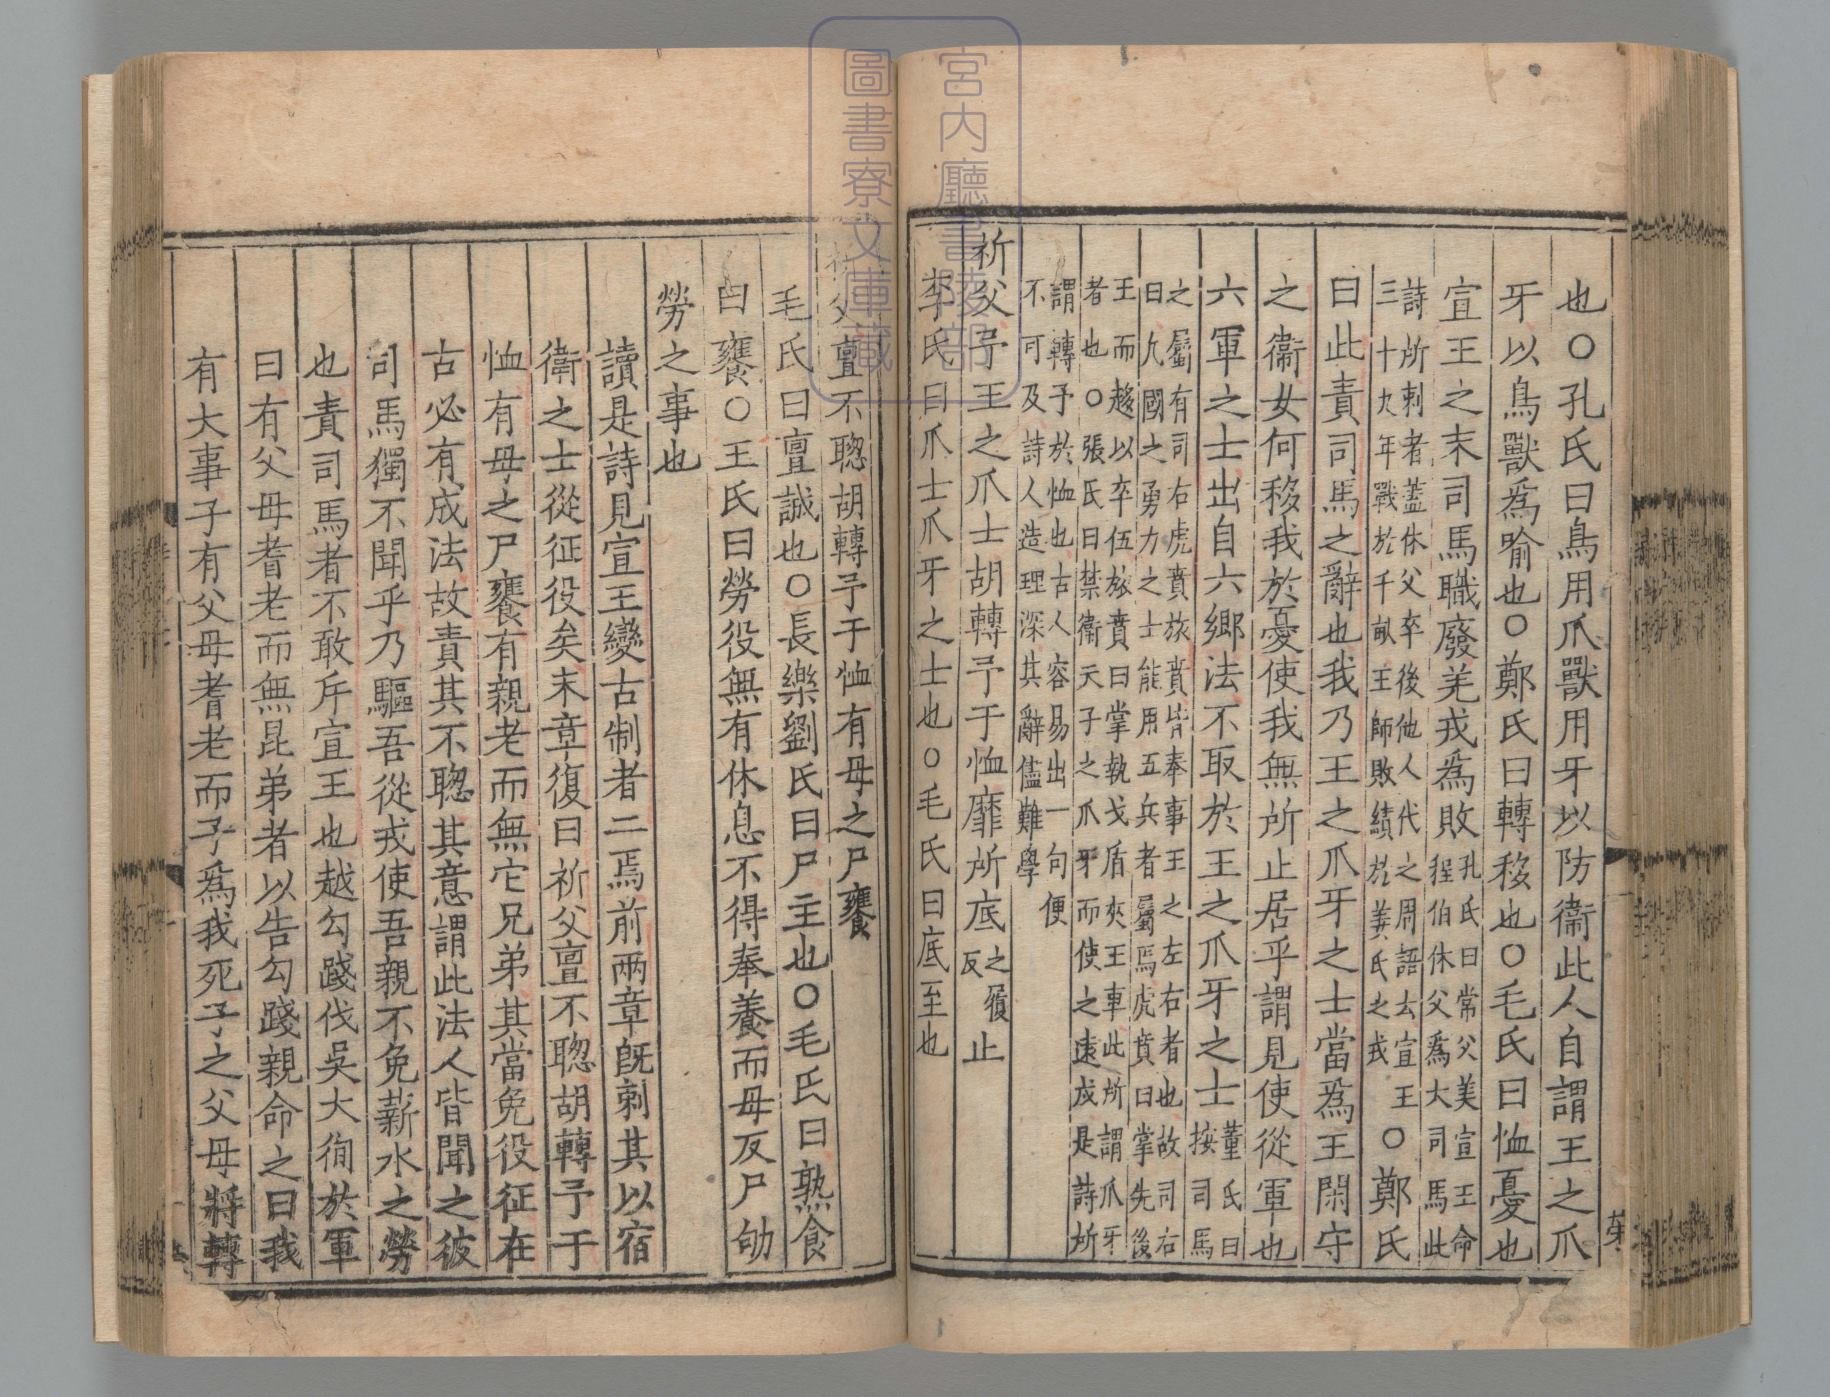 也○孔氏曰鳥用爪獸用牙以防衞此人自謂王之爪
牙以鳥獸爲喻也○鄭氏曰轉移也○毛氏曰恤憂也
宣王之末司馬職廢羌戎爲敗孔氏曰常父美宣王命程伯休父爲大司馬此
詩所刺者蓋休父卒後他人代之周語去宣王
三十九年戰於千畝王師敗績於姜氏之戎
○鄭氏
曰此責司馬之辭也我乃王之爪牙之士當爲王閑守
之衞女何移我於憂使我無所止居乎謂見使從軍也
六軍之士出自六鄉法不取於王之爪牙之士董氏曰按司馬
之屬有司右虎賁旅賁皆奉事王之左右者也故司右
曰凡國之勇力之士能用五兵者屬焉虎賁曰掌先後
王而趨以卒伍旅賁曰掌執戈盾夾王車此所謂爪牙
者也○張氏曰禁衞天子之爪牙而使之遠戍是詩所
謂轉予於恤也古人容易出一句便
不可及詩人造理深共辭儘難學
祈父予王之爪士胡轉予于恤靡所底之履反止
李氏曰爪士爪牙之士也○毛氏曰底至也
祈父亶不聰胡轉予于恤有母之尸饔
毛氏曰亶誠也○長樂劉氏曰尸主也○毛氏曰熟食
曰饔○王氏曰勞役無有休息不得奉養而母反尸劬
勞之事也
讀是詩見宣王變古制者二焉前兩章旣刺其以宿
衞之士從征役矣末章復曰祈父亶不聰胡轉予于
恤有母之尸饔有親老而無它兄弟其當免役征在
古必有成法故責其不聰其意謂此法人皆聞之彼
司馬獨不聞乎乃驅吾從戎使吾親不免薪水之勞
也責司馬者不敢斥宣王也越勾踐伐吳大徇於軍
曰有父母耆老而無昆弟者以告勾踐親命之曰我
有大事子有父母耆老而子爲我死子之父母將轉
宮内廳書陵部
圖書寮文庫藏